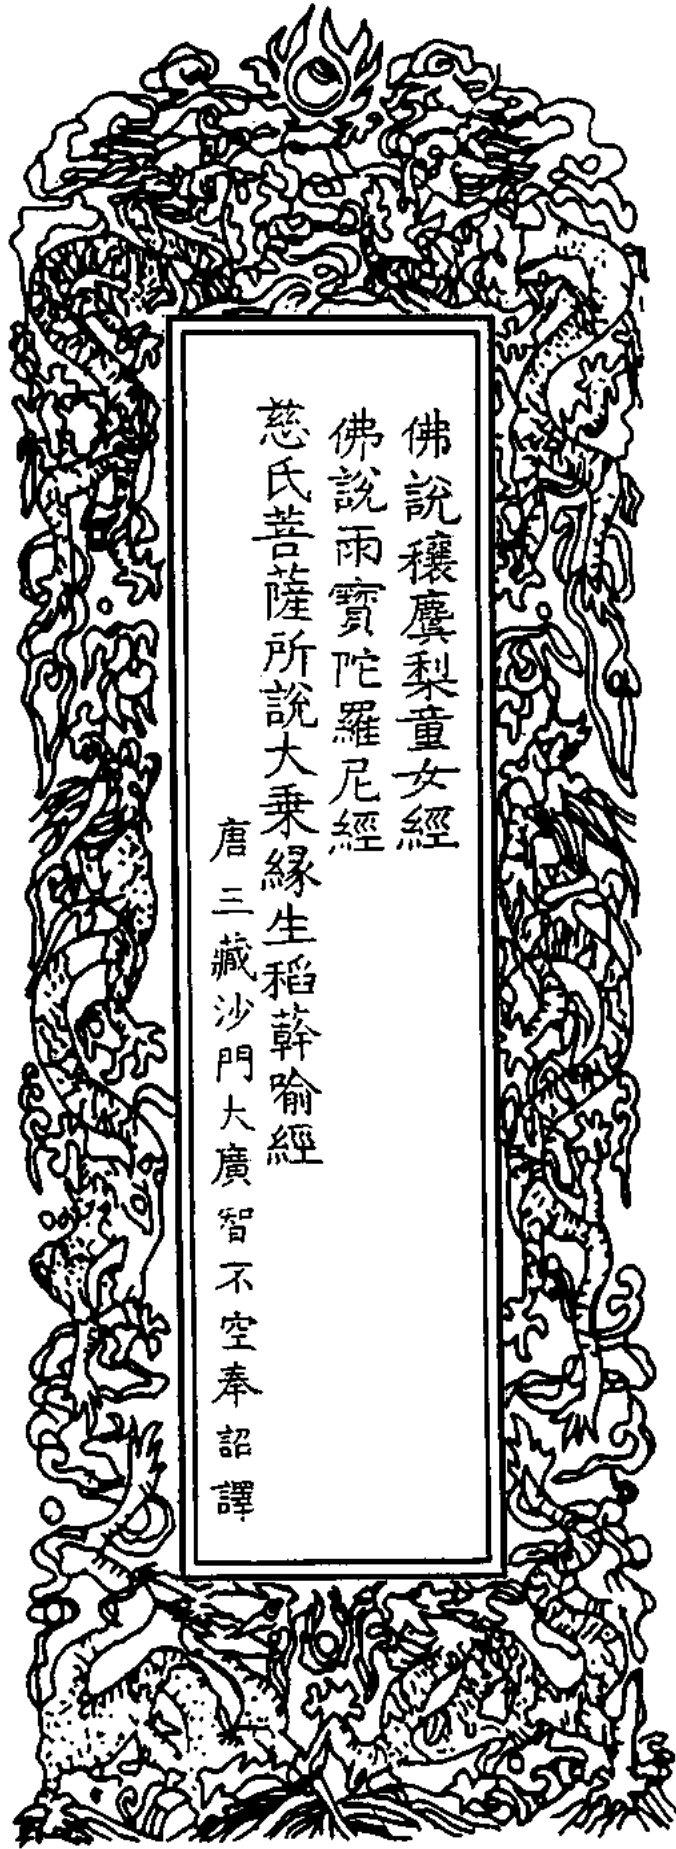 佛說穰麌梨童女經
佛說雨寶陀羅尼經
慈氏菩薩所說大乗縁生稻𦼮喻經
唐三藏沙門大廣智不空奉詔譯